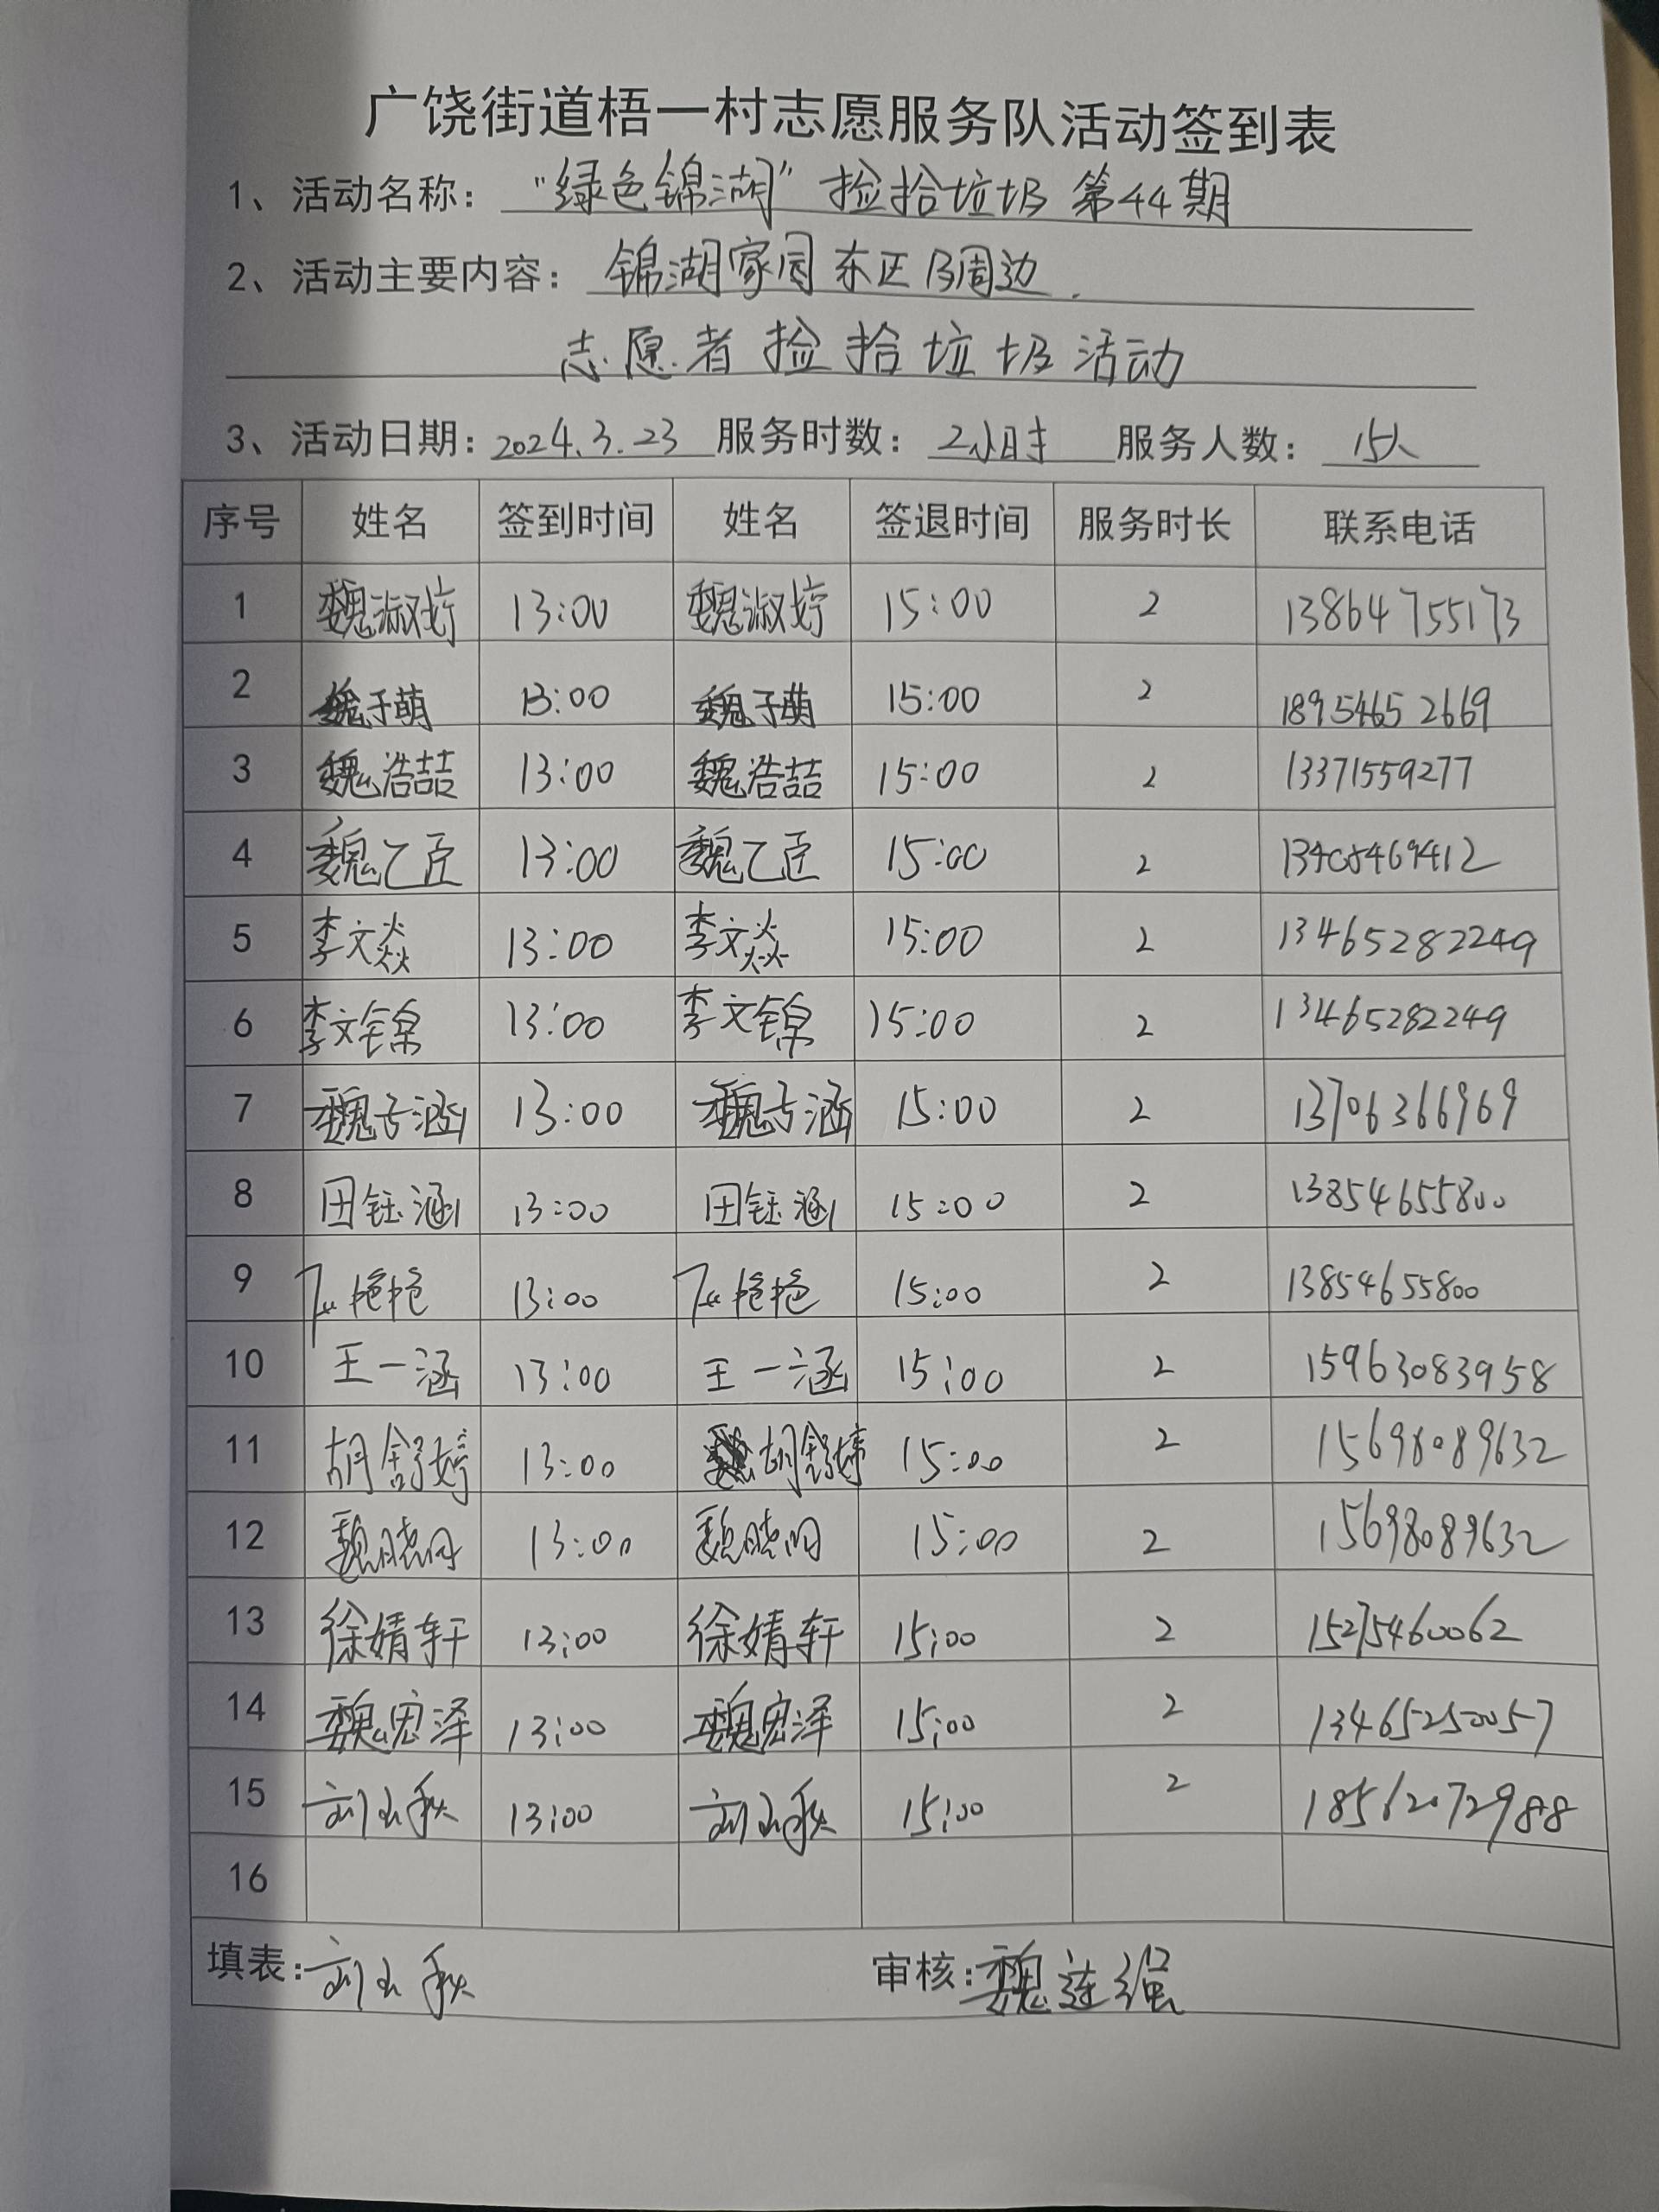 广饶街道梧一村志愿服务队活动签到表
1、活动名称：“绿色锦湖”捡拾垃圾 第44期
2、活动主要内容：锦湖家园东区及周边.
志愿者捡拾垃圾活动
3、活动日期：2024.3.23 服务时数：2小时 服务人数：15人
序号 姓名 签到时间 姓名 签退时间 服务时长 联系电话
1 魏淑婷 13:00 魏淑婷 15:00 2 13864755173
2 魏于萌 13:00 魏于萌 15:00 2 18954652669
3 魏浩喆 13:00 魏浩喆 15:00 2 13371559277
4 魏乙臣 13:00 魏乙臣 15:00 2 13408469412
5 李文焱 13:00 李文焱 15:00 2 13465282249
6 李文锦 13:00 李文锦 15:00 2 13465282249
7 魏子涵 13:00 魏子涵 15:00 2 13706366969
8 田钰涵 13:00 田钰涵 15:00 2 13854655800
9 艳艳 13:00 艳艳 15:00 2 13854655800
10 王一涵 13:00 王一涵 15:00 2 15963083958
11 胡舒婷 13:00 胡舒婷 15:00 2 15698089632
12 魏晓丹 13:00 魏晓丹 15:00 2 15698089632
13 徐婧轩 13:00 徐婧轩 15:00 2 15275460062
14 魏宏泽 13:00 魏宏泽 15:00 2 13465250057
15 刘小秋 13:00 刘小秋 15:00 2 18562072988
16
填表：刘小秋 审核：魏连强